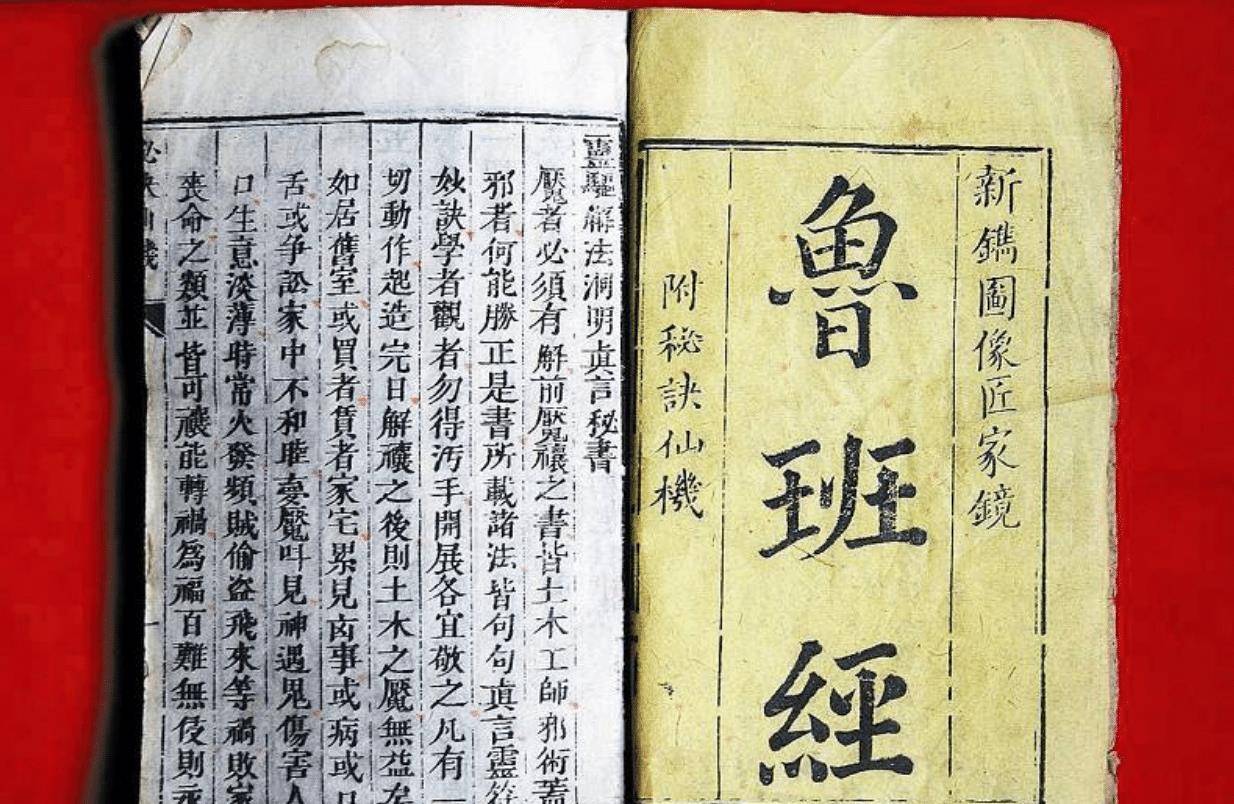 新鐫圖像匠家鏡
魯班經
附秘訣仙機
靈驅解法洞明真言秘書
魘者必須有解前魘禳之書皆土木工師邪術蓋
邪者何能勝正是書所載諸法皆句句真言靈符
妙訣學者觀者勿得汚手開展各宜敬之凡有一
切動作起造完日解禳之後則土木之魘無益矣
如居舊室或買者賃者家宅累見凶事或病或口
舌或爭訟家中不和睡夢魘呌見神遇鬼傷害人
口生意淡薄時常火發頻賊偷盗飛來等禍敗家
喪命之類並皆可禳能轉禍為福百難無侵則永